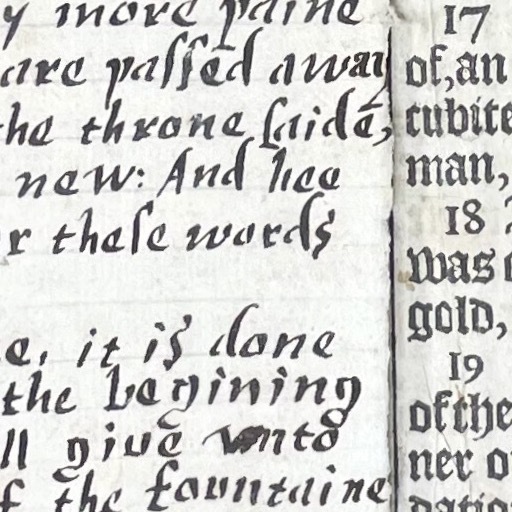 y more paine
are passed away
the throne saide,
new: And hee
r these words
e, it is done
the begining
ll give vnto
f the fountaine
17
of, an
cubite
man,
18
was
gold,
19
of the
ner o